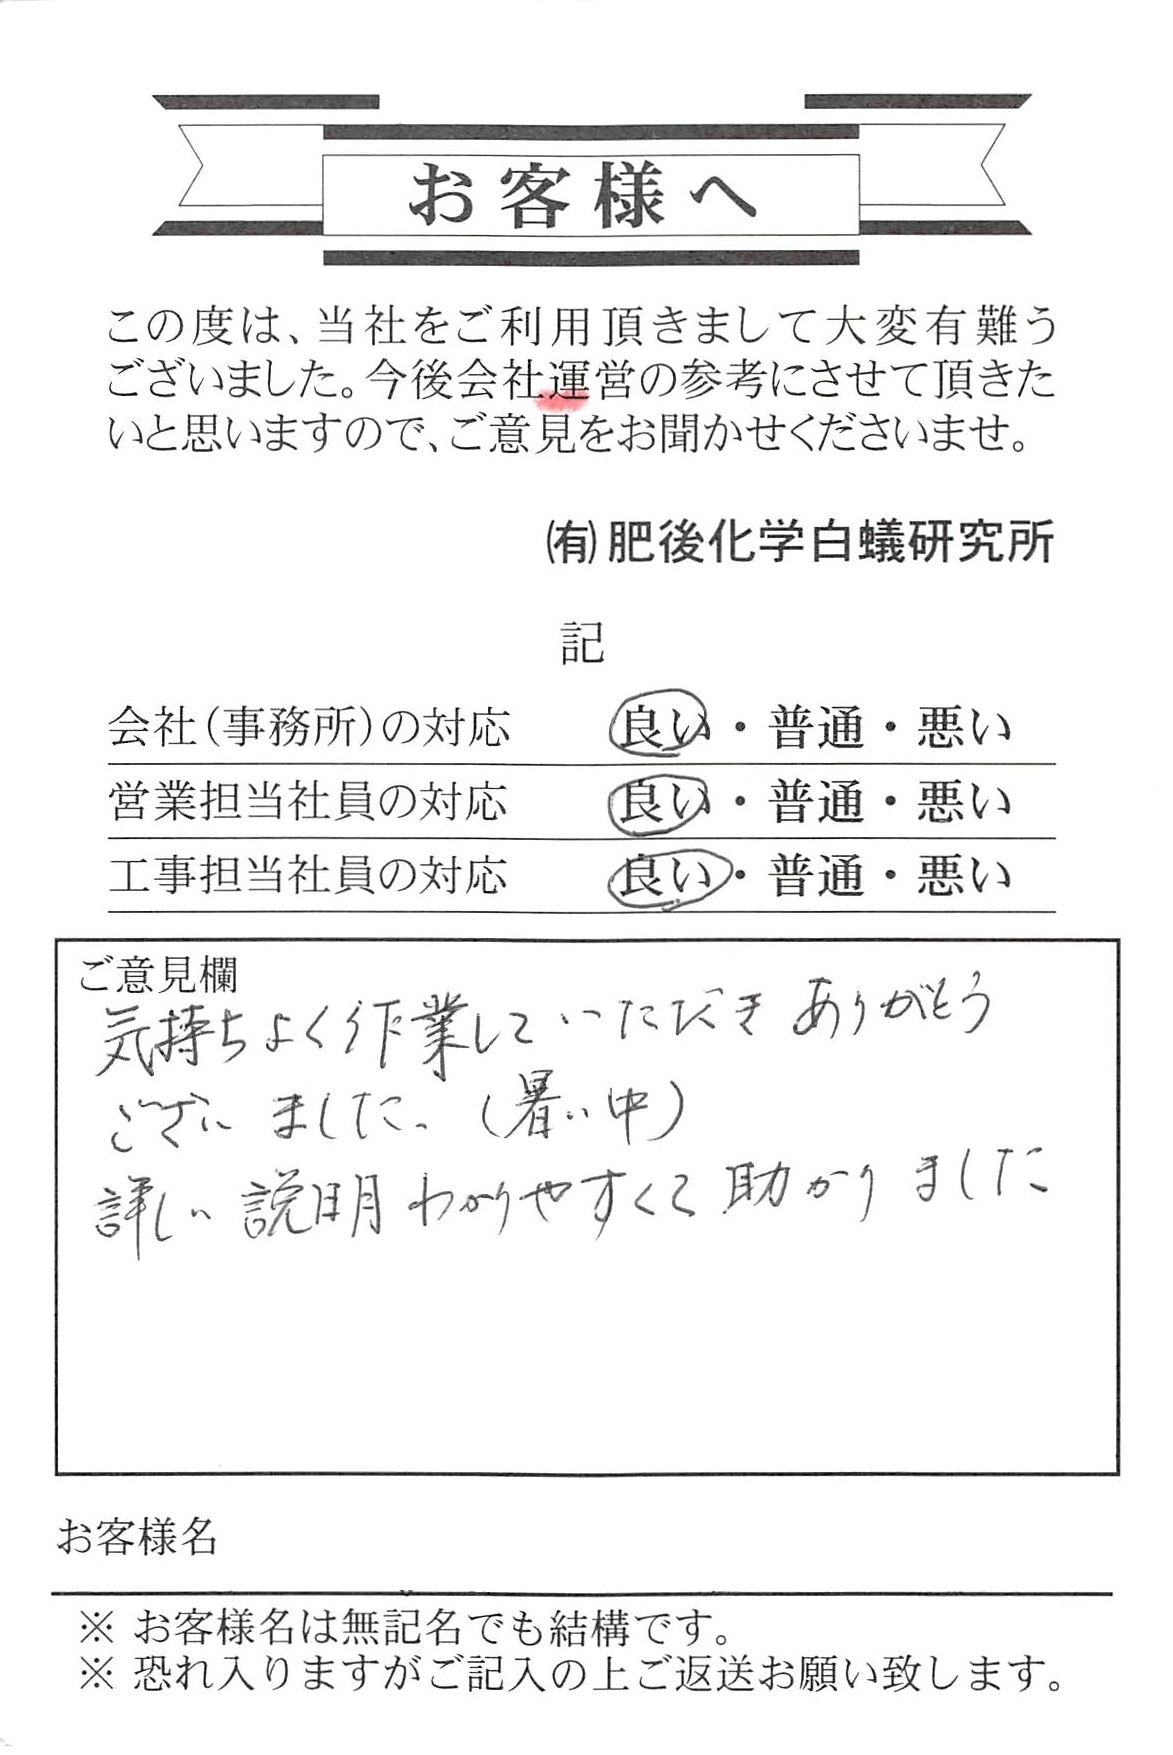 お客様へ
この度は、当社をご利用頂きまして大変有難う
ございました。今後会社運営の参考にさせて頂きた
いと思いますので、ご意見をお聞かせくださいませ。
㈲肥後化学白蟻研究所
記
会社(事務所)の対応 良い・普通・悪い
営業担当社員の対応 良い・普通・悪い
工事担当社員の対応 良い・普通・悪い
ご意見欄
気持ちよく作業していただき ありがとう
ございました。(暑い中)
詳しい説明わかりやすくて助かりました
お客様名
※ お客様名は無記名でも結構です。
※ 恐れ入りますがご記入の上ご返送お願い致します。